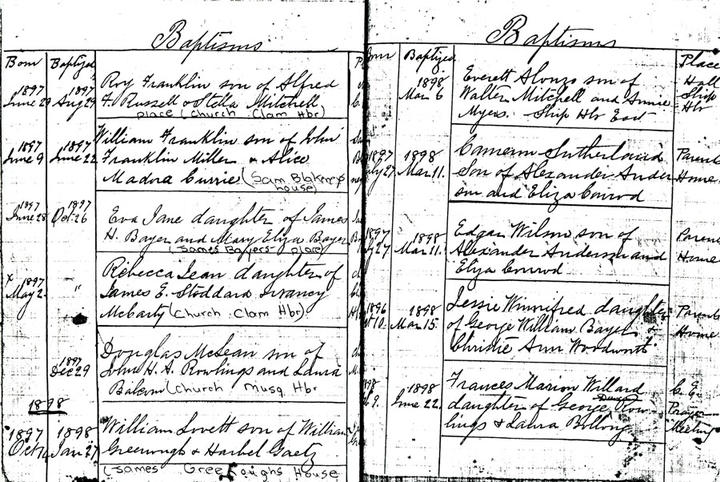 Baptisms
Born Baptized
1897 1897 Roy Franklin son of Alfred
June 29 Aug 29 F. Russell & Stella Mitchell
place (Church Clam Hbr)
1897 1897 William Franklin son of John
June 9 June 22 Franklin Miller & Alice
Madora Currie (Sam Blakeny's
house)
1897 1897 Eva Jane daughter of James
June 28 Oct 26 H. Bayer and Mary Eliza Bayer
(James Bayers place)
x 1897 Rebecca Jean daughter of
May 2 " James E. Stoddard & Nancy
McCarty (Church Clam Hbr)
Douglas McLean son of
1897 John H. A. Rowlings and Laura
Dec 29 Balcom (Church Musq Hbr
1898
1897 1898 William Lovett son of William
Oct Jan 27 Greenough &
(James Greenoughs House
Baptisms
Born Baptized Place
1898 Everett Alonzo son of Hall
Mar 6 Walter Mitchell and Annie Ship
Myers. Ship Hbr East Hbr
1897 1898 Cameron Sutherland Parents
27 Mar 11. Son of Alexander Ander Home
son and Eliza Conrod
1897 1898 Edgar Wilson son of Parents
27 Mar 11. Alexander Anderson and Home
Eliza Conrod
1896 1898 Jessie Winnifred daughter Parents
10 Mar 15. of George William Bayer & Home
Christie Ann Woodworth
98 1898 Frances Marion Willard C. E.
9. June 22. daughter of George Row Prayer
lings & Laura Meeting